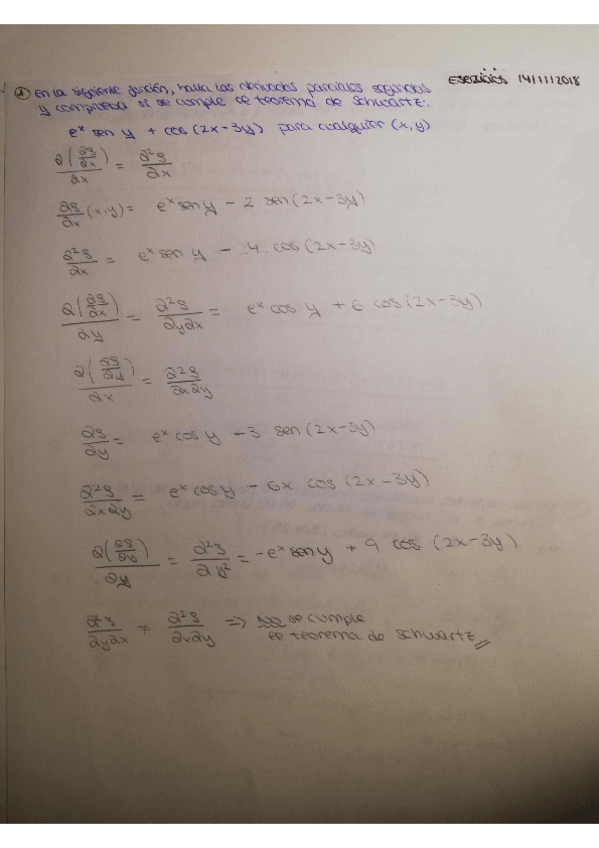 Ejercicios 14/11/2018
① En la siguiente función, halla las derivadas parciales segundas
y comprueba si se cumple el teorema de Schwartz.
e^x sen y + cos(2x-3y) para cualquier (x,y)
∂(∂f/∂x)/∂x = ∂²f/∂x
∂f/∂x (x,y) = e^x sen y - 2 sen(2x-3y)
∂²f/∂x = e^x sen y - 4 cos(2x-3y)
∂(∂f/∂x)/∂y = ∂²f/∂y∂x = e^x cos y + 6 cos(2x-3y)
∂(∂f/∂y)/∂x = ∂²f/∂x∂y
∂f/∂y = e^x cos y - 3 sen(2x-3y)
∂²f/∂x∂y = e^x cos y - 6x cos(2x-3y)
∂(∂f/∂y)/∂y = ∂²f/∂y² = -e^x sen y + 9 cos(2x-3y)
∂²f/∂y∂x ≠ ∂²f/∂x∂y => NO se cumple
el teorema de Schwartz